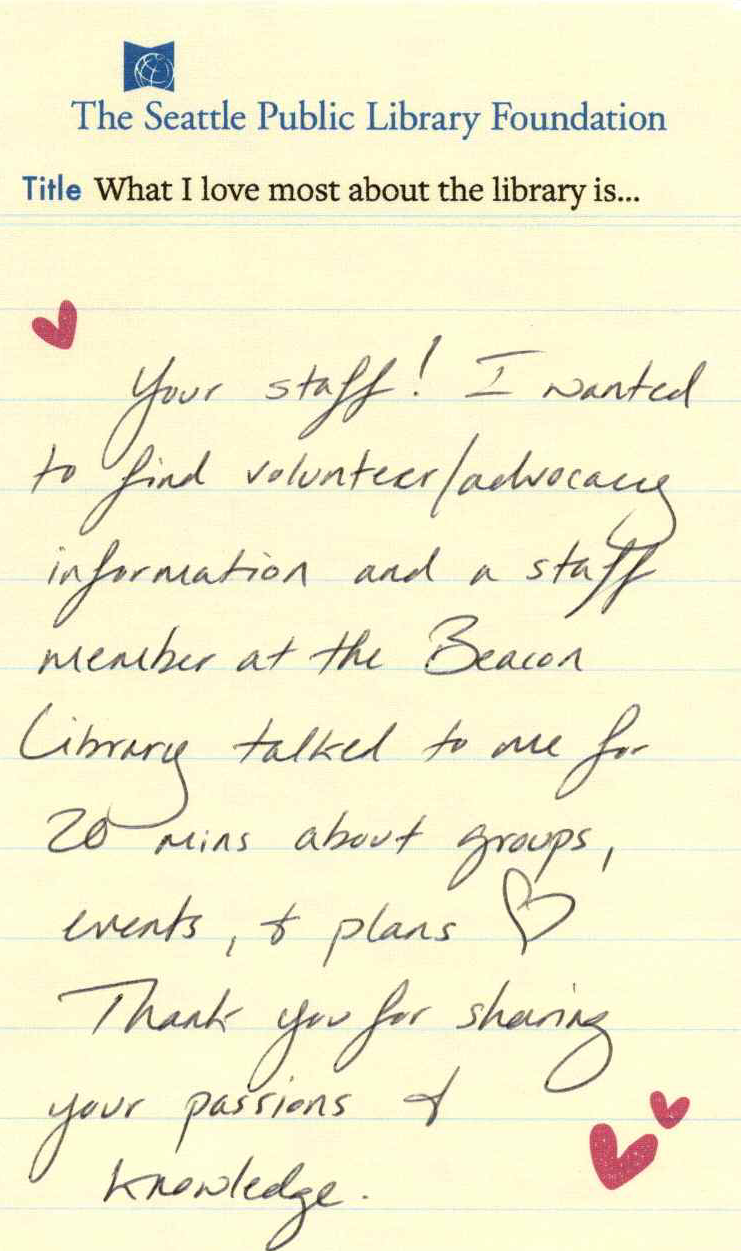 The Seattle Public Library Foundation
Title What I love most about the library is...
Your staff! I wanted
to find volunteer/advocacy
information and a staff
member at the Beacon
Library talked to me for
20 mins about groups,
events, & plans ♡
Thank you for sharing
your passions &
knowledge.